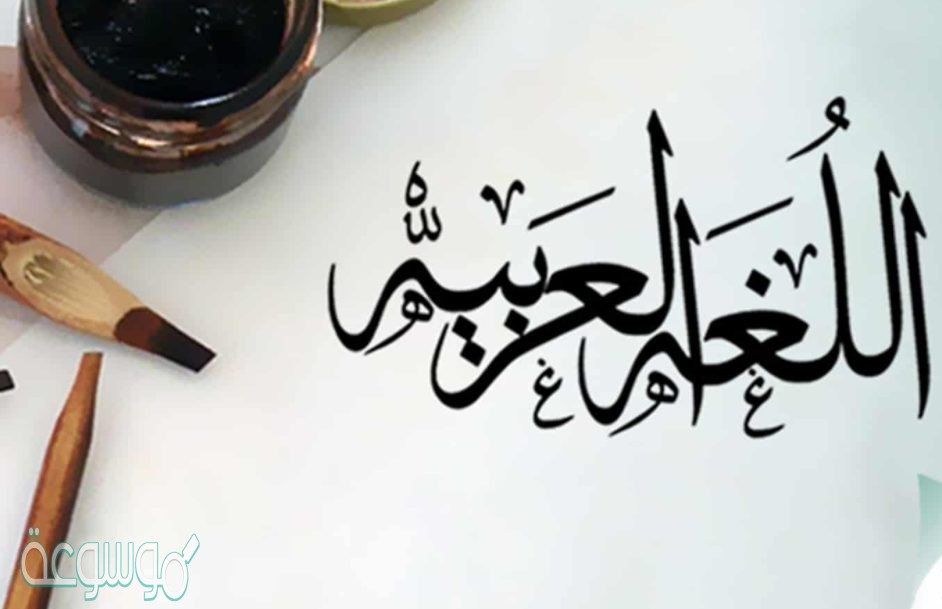 اللُغَه العَربيه
موسوعة